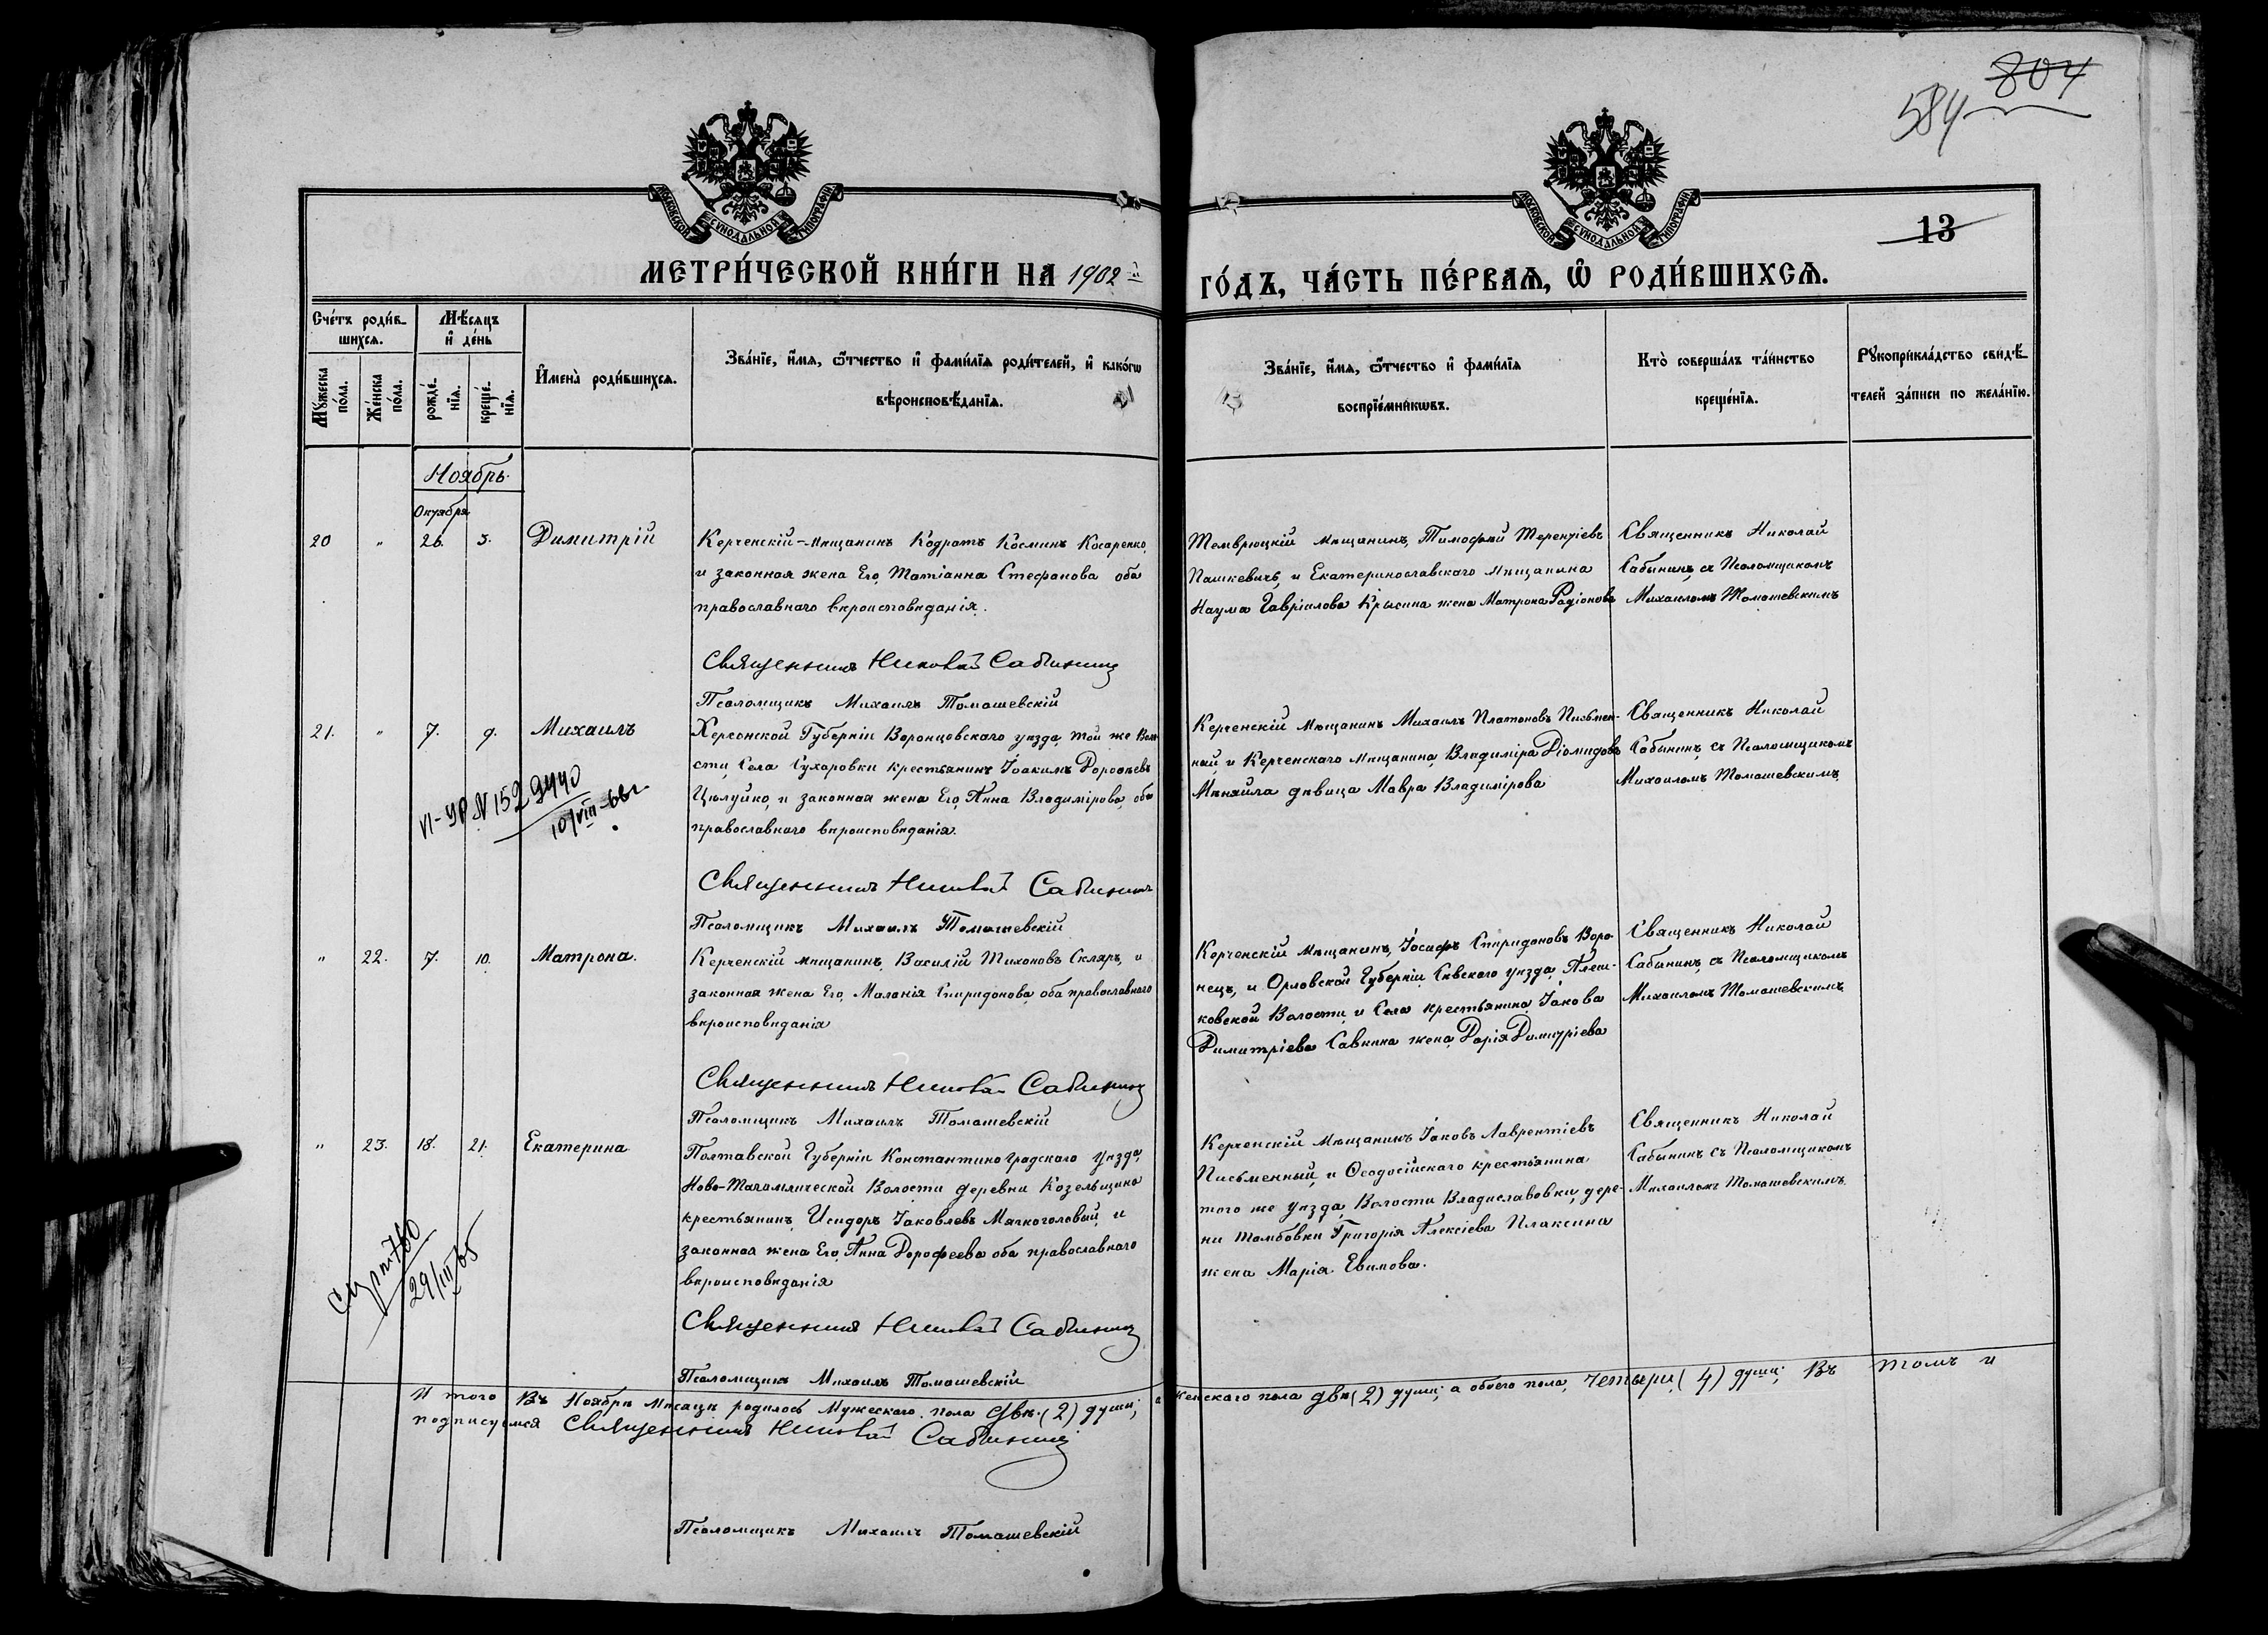 804
584
МОСКОВСКОЙ СѴНОДАЛЬНОЙ ТИПОГРАФІИ
МОСКОВСКОЙ СѴНОДАЛЬНОЙ ТИПОГРАФІИ
13
МЕТРИ́ЧЕСКОЙ КНИ́ГИ НА 1902й
ГО́ДЪ, ЧА́СТЬ ПЕ́РВАѦ, Ѡ҆ РОДИ́ВШИХСѦ.
Сче́тъ роди́в-
шихся.
Мꙋ́жеска по́ла.
Же́нска по́ла.
Мѣ́сяцъ
и҆ де́нь
рожде́-
нїя.
креще́-
нїя.
И҆мена̀ роди́вшихся.
Зва́нїе, и҆́мя, ѻ҆́тчество и҆ фами́лїя роди́телей, и҆ како́гѡ
вѣроисповѣ́данїя.
Зва́нїе, и҆́мя, ѻ҆́тчество и҆ фами́лїя
воспрїе́мникѡвъ.
Кто̀ соверша́лъ та́инство
креще́нїя.
Рꙋкоприкла́дство свидѣ́-
телей за́писи по жела́нїю.
Ноябрь.
Октября
20 " 26. 3. Димитрій
Керченскій-мѣщанинъ Кодратъ Косминъ Косаренко,
и законная жена Его, Татіанна Стефанова оба
православнаго вѣроисповѣданія.
Священникъ Николай Сабининъ
Псаломщикъ Михаилъ Томашевскій
Темврюцкій мѣщанинъ, Тимофей Терентіевъ
Пашкевичъ, и Екатеринославскаго мѣщанина
Наума Гавріилова Крысина жена Матрона Родіонова
Священникъ Николай
Сабынинъ, съ Псаломщикомъ
Михаиломъ Томашевскимъ
21. " 7. 9. Михаилъ
VI-УР N 1529440
10/VIII-66г.
Херсонской Губерніи Воронцовскаго уѣзда, той же Воло
сти, Села Сухаровки крестьянинъ Іоакимъ Дорофеевъ
Цѣлуйко, и законная жена Его, Анна Владимірова, оба
православнаго вѣроисповѣданія.
Священникъ Николай Сабининъ
Псаломщикъ Михаилъ Томашевскій
Керченскій мѣщанинъ Михаилъ Платоновъ Письмен-
ный, и Керченскаго мѣщанина, Владиміра Діомидова
Мѣняйла дѣвица Мавра Владимірова
Священникъ Николай
Сабынинъ, съ Псаломщикомъ
Михаиломъ Томашевскимъ
" 22. 7. 10. Матрона.
Керченскій мѣщанинъ, Василій Тихоновъ Скляръ, и
законная жена Его, Маланія Спиридонова, оба православнаго
вѣроисповѣданія
Священникъ Николай Сабининъ
Псаломщикъ Михаилъ Томашевскій
Керченскій Мѣщанинъ, Іосифъ Спиридоновъ Воро-
нецъ, и Орловской Губерніи, Сѣвскаго уѣзда, Плеш-
ковской Волости, и Села крестьянина, Іакова
Димитріева Савкина жена, Дарія Димитріева
Священникъ Николай
Сабынинъ, съ Псаломщикомъ
Михаиломъ Томашевскимъ
" 23. 18. 21. Екатерина
29/III 65
Полтавской Губерніи Константиноградскаго уѣзда,
Ново-Тагамлической Волости деревни Козельщино
крестьянинъ, Исидоръ Іаковлевъ Мягкоголовый, и
законная жена Его, Анна Дорофеева оба православнаго
вѣроисповѣданія
Священникъ Николай Сабининъ
Псаломщикъ Михаилъ Томашевскій
Керченскій Мѣщанинъ Іаковъ Лаврентіевъ
Письменный, и Ѳеодосійскаго крестьянина
того же уѣзда, Волости Владиславовки, дере-
ни Тамбовки Григорія Алексіева Плаксина
жена Марія Евимова.
Священникъ Николай
Сабынинъ съ Псаломщикомъ
Михаиломъ Томашевскимъ
И того Въ Ноябрѣ Мѣсяцѣ родилось Мужескаго пола двѣ (2) души; а женскаго пола двѣ (2) души; а обоего пола, четыри, (4) души; Въ томъ и
подписуемся Священникъ Николай Сабининъ
Псаломщикъ Михаилъ Томашевскій